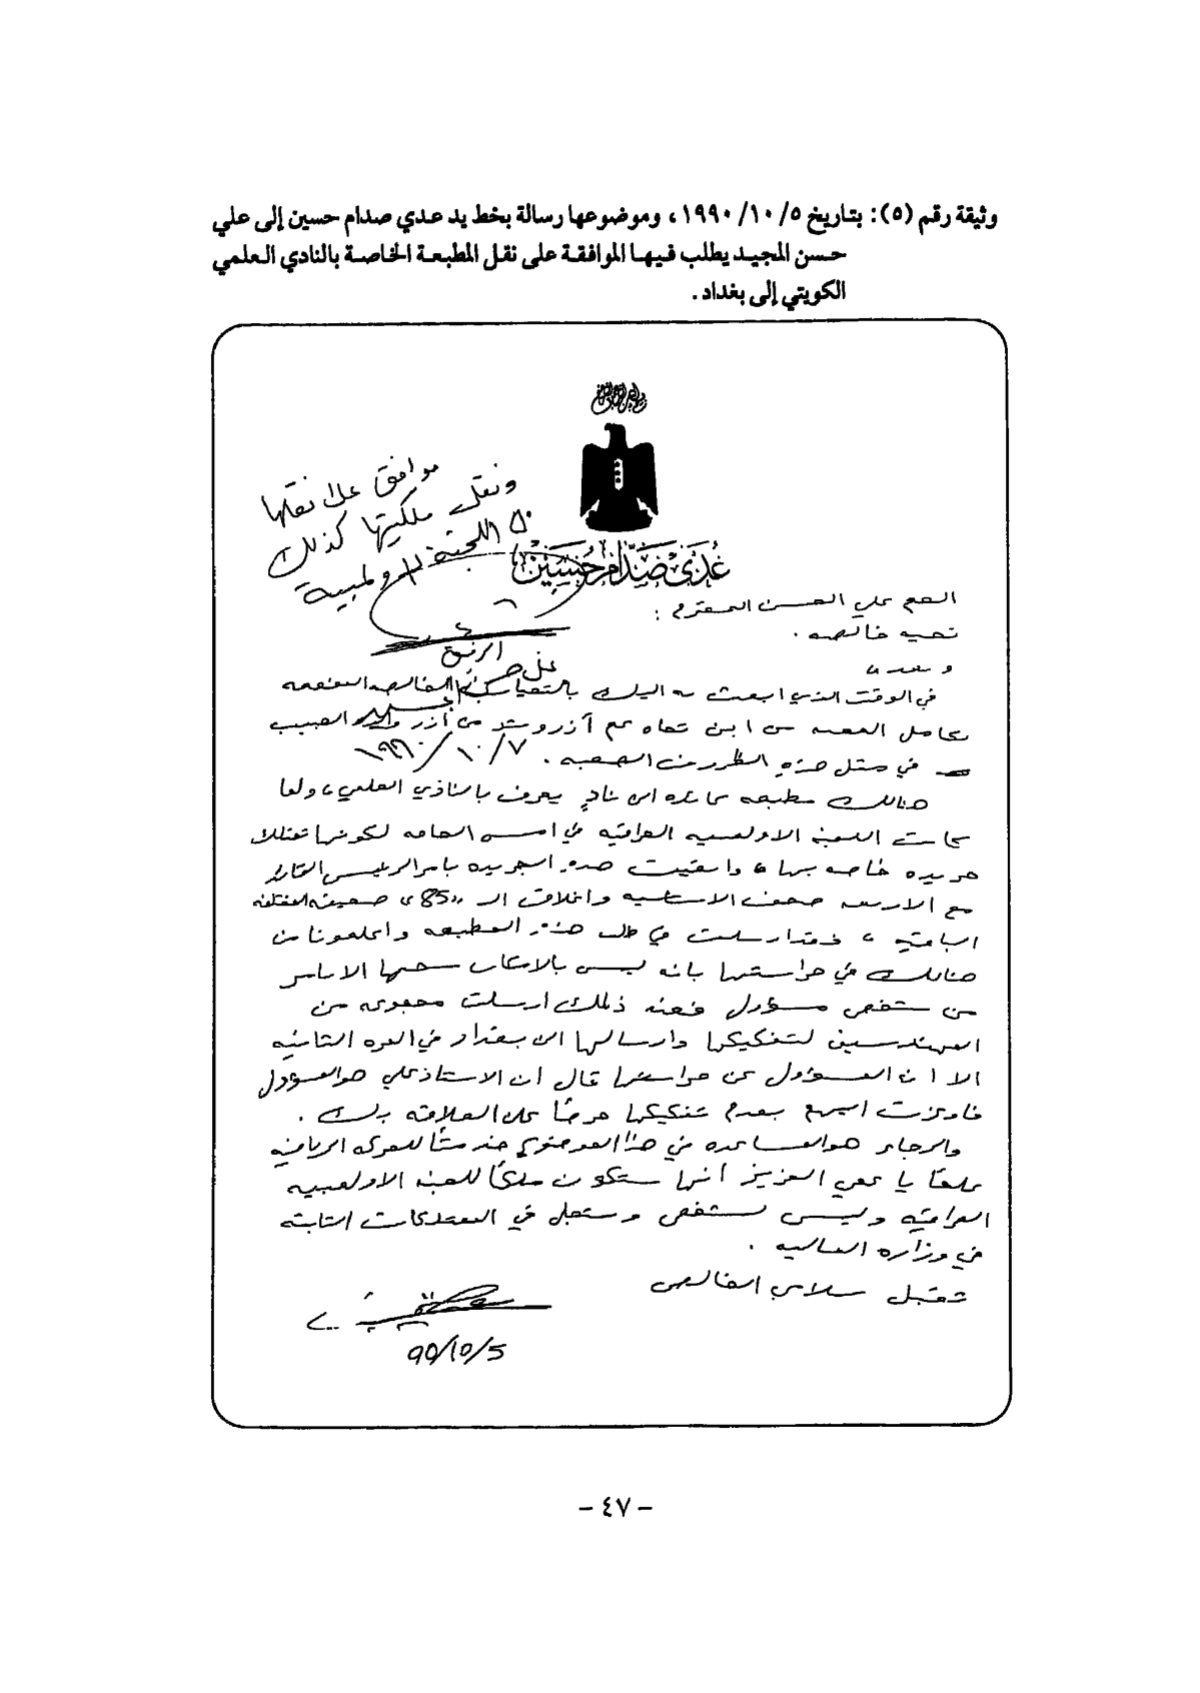 وثيقة رقم (٥): بتاريخ ٥/ ١٠/ ١٩٩٠، وموضوعها رسالة بخط يد عدي صدام حسين إلى علي
حسن المجيد يطلب فيها الموافقة على نقل المطبعة الخاصة بالنادي العلمي
الكويتي إلى بغداد.
موافق على نقلها
ونقل ملكيتها كذلك
الى اللجنة الاولمبية
عُدَي صَدّام حُسَين
العم علي الحسن المحترم :
تحيه خالصه .
وبعده
الرفيق
علي حسن المجيد
٧/ ١٠/ ١٩٩٠
في الوقت الذي ابعث به اليك بالتحيات الخالصه المفعمه
بكامل المحبه من ابن تجاه عم آزر وشد من أزر والده الحبيب
في مثل هذه الظروف الصعبه .
هنالك مطبعه عائده الى نادٍ يعرف بالنادي العلمي، ولما
كانت اللجنه الاولمبيه العراقيه في امس الحاجه لكونها تمتلك
جريده خاصه بها، وابقيت هذه الجريده بامر الرئيس القائد
مع الاربعه صحف الاساسيه واغلاق الـ «85» صحيفه المختلفه
الباقيه، فقد ارسلت في طلب هذه المطبعه واعلمونا من
هنالك في حراستها بانه ليس بالامكان سحبها الا بامر
من شخص مسؤول فعند ذلك ارسلت مجموعه من
المهندسين لتفكيكها وارسالها الى بغداد في المره الثانيه
الا ان المسؤول عن حراستها قال ان الاستاذ علي هو المسؤول
فاوعزت اليهم بعدم تفكيكها حرصاً على العلاقه بك .
والرجاء هو المساعده في هذا الموضوع خدمتاً للحركه الرياضيه
علماً يا عمي العزيز أنها ستكون ملكاً للجنه الاولمبيه
العراقيه وليس لشخص وستسجل في الممتلكات الثابته
في وزاره الماليه .
تقبل سلامي الخالص
90/10/5
- ٤٧ -